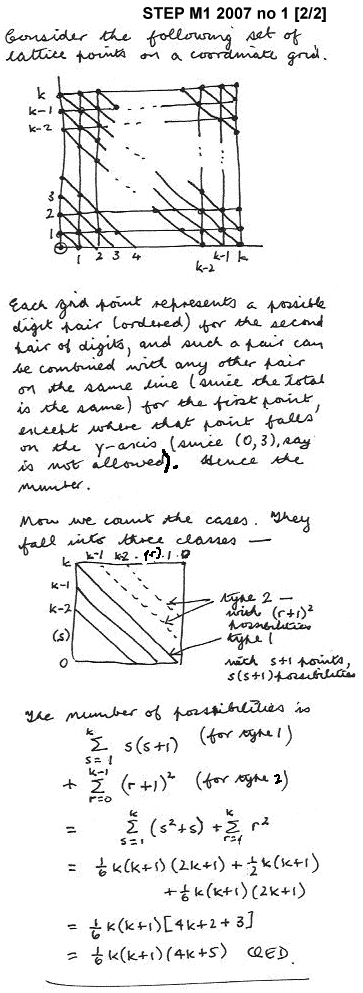 STEP M1 2007 no 1 [2/2]
Consider the following set of
lattice points on a coordinate grid.
k
k-1
k-2
3
2
1
1 2 3 4
k-2
k-1 k
Each grid point represents a possible
digit pair (ordered) for the second
pair of digits, and such a pair can
be combined with any other pair
on the same line (since the total
is the same) for the first point,
except where that point falls
on the y-axis (since (0,3), say
is not allowed). Hence the
number.
Now we count the cases. They
fall into three classes —
k k-1 k-2 . (r). 1 . 0
k-1
k-2
(s)
0
type 2 —
with (r+1)²
possibilities
type 1
with s+1 points,
s(s+1) possibilities
The number of possibilities is
k
Σ s(s+1) (for type 1)
s=1
k-1
+ Σ (r+1)² (for type 2)
r=0
= k Σ s=1 (s²+s) + k Σ r=1 r²
= 1/6 k(k+1)(2k+1) + 1/2 k(k+1)
+ 1/6 k(k+1)(2k+1)
= 1/6 k(k+1)[4k+2+3]
= 1/6 k(k+1)(4k+5) QED.